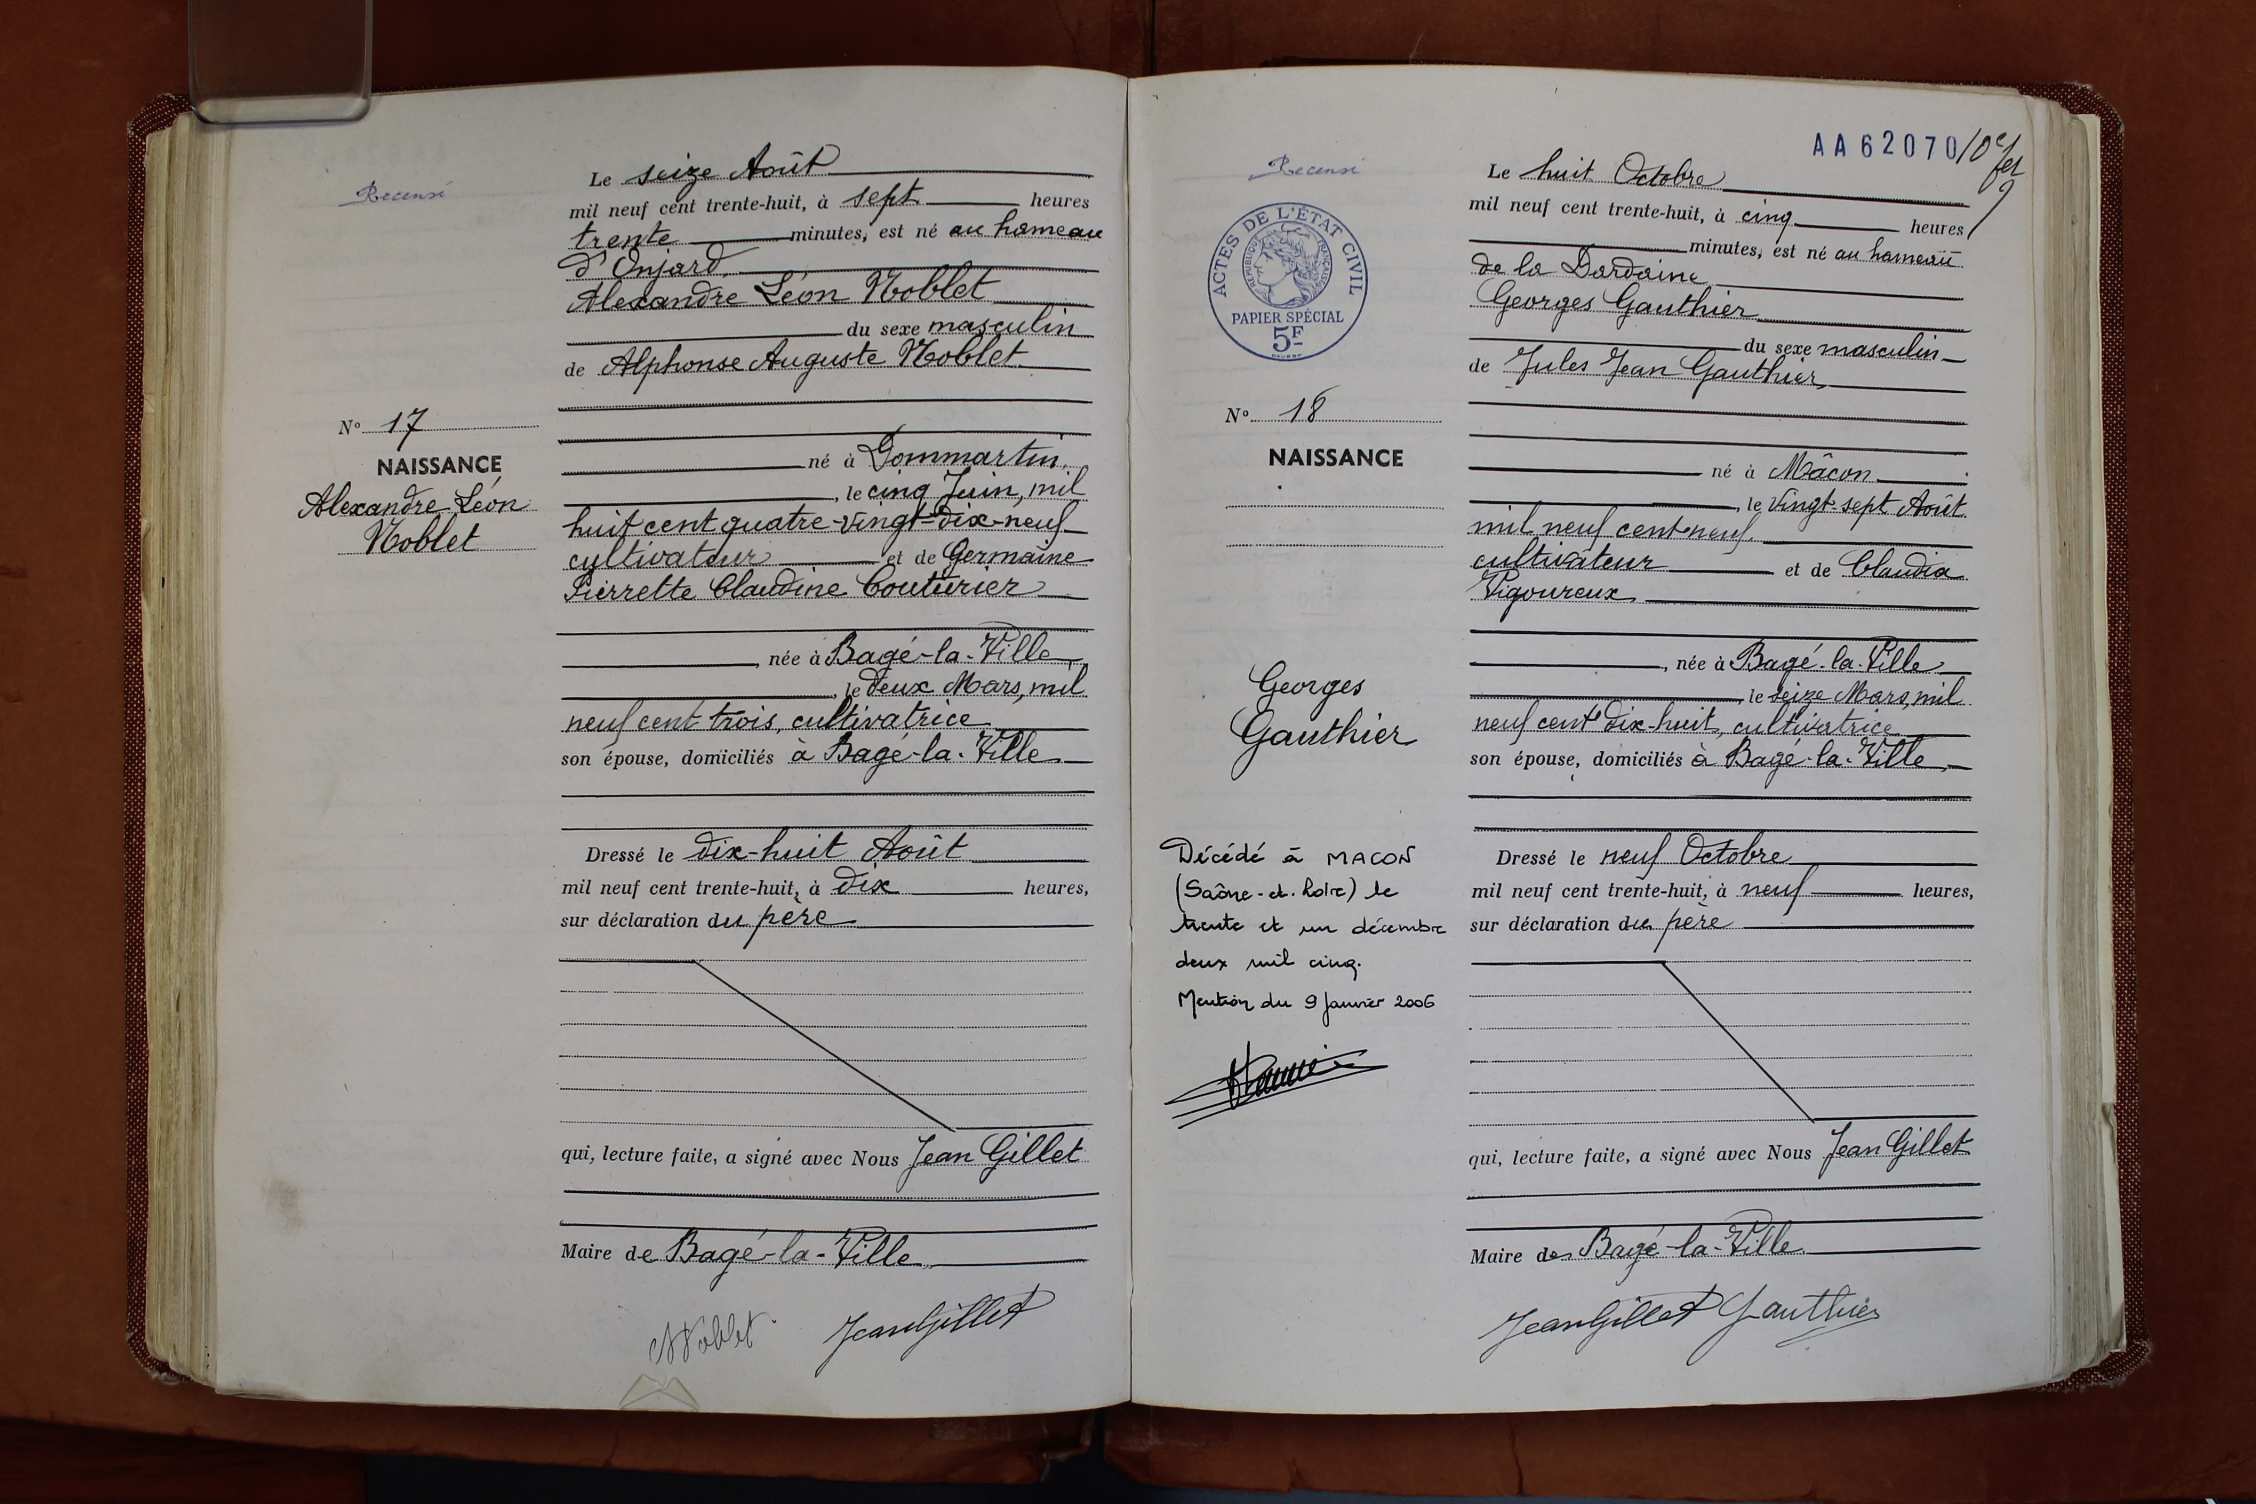 Recensé
Le seize Août
mil neuf cent trente-huit, à sept heures
trente minutes, est né au hameau
d'Onjard
Alexandre Léon Noblet
du sexe masculin
de Alphonse Auguste Noblet
N° 17
NAISSANCE
Alexandre Léon
Noblet
né à Dommartin,
, le cinq Juin, mil
huit cent quatre-vingt-dix-neuf
cultivateur et de Germaine
Pierrette Claudine Couturier
, née à Bagé-la-Ville,
, le deux Mars, mil
neuf cent trois, cultivatrice
son épouse, domiciliés à Bagé-la-Ville
Dressé le dix-huit Août
mil neuf cent trente-huit, à dix heures,
sur déclaration du père
qui, lecture faite, a signé avec Nous Jean Gillet
Maire de Bagé-la-Ville
Noblet Jean Gillet
AA62070
10e
Recensé
ACTES DE L'ÉTAT CIVIL
RÉPUBLIQUE FRANÇAISE
PAPIER SPÉCIAL
5F
Le huit Octobre
mil neuf cent trente-huit, à cinq heures
minutes, est né au hameau
de la Dardaine
Georges Gauthier
du sexe masculin
de Jules Jean Gauthier
N° 18
NAISSANCE
Georges
Gauthier
né à Mâcon
, le vingt-sept Août
mil neuf cent-neuf
cultivateur et de Claudia
Vigoureux
, née à Bagé-la-Ville
, le seize Mars, mil
neuf cent dix-huit, cultivatrice
son épouse, domiciliés à Bagé-la-Ville,
Décédé à MACON
(Saône-et-Loire) le
trente et un décembre
deux mil cinq.
Mention du 9 Janvier 2006
Dressé le neuf Octobre
mil neuf cent trente-huit, à neuf heures,
sur déclaration du père
qui, lecture faite, a signé avec Nous Jean Gillet
Maire de Bagé-la-Ville
Jean Gillet Gauthier